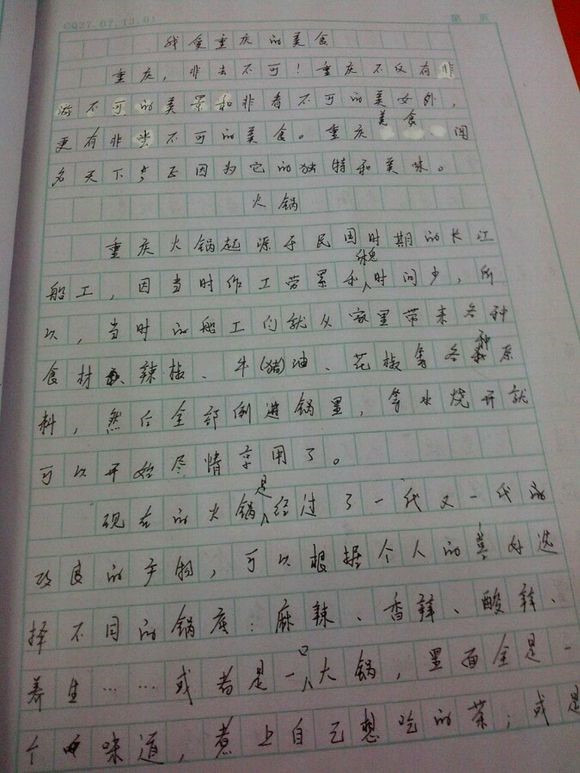 我食重庆的美食
重庆，非去不可！重庆不仅有非
游不可的美景和非看不可的美女外，
更有非尝不可的美食。重庆美食闻
名天下，正因为它的独特和美味。
火锅
重庆火锅起源于民国时期的长江
船工，因当时作工劳累和休息时间少，所
以，当时的船工们就从家里带来各种
食材、辣椒、牛(猪)油、花椒等各种原
料，然后全部倒进锅里，等水烧开就
可以开始尽情享用了。
现在的火锅是经过了一代又一代的
改良的产物，可以根据个人的喜好选
择不同的锅底：麻辣、香辣、酸辣、
养生……或者是一口大锅，里面全是一
个味道，煮上自己想吃的菜；或是